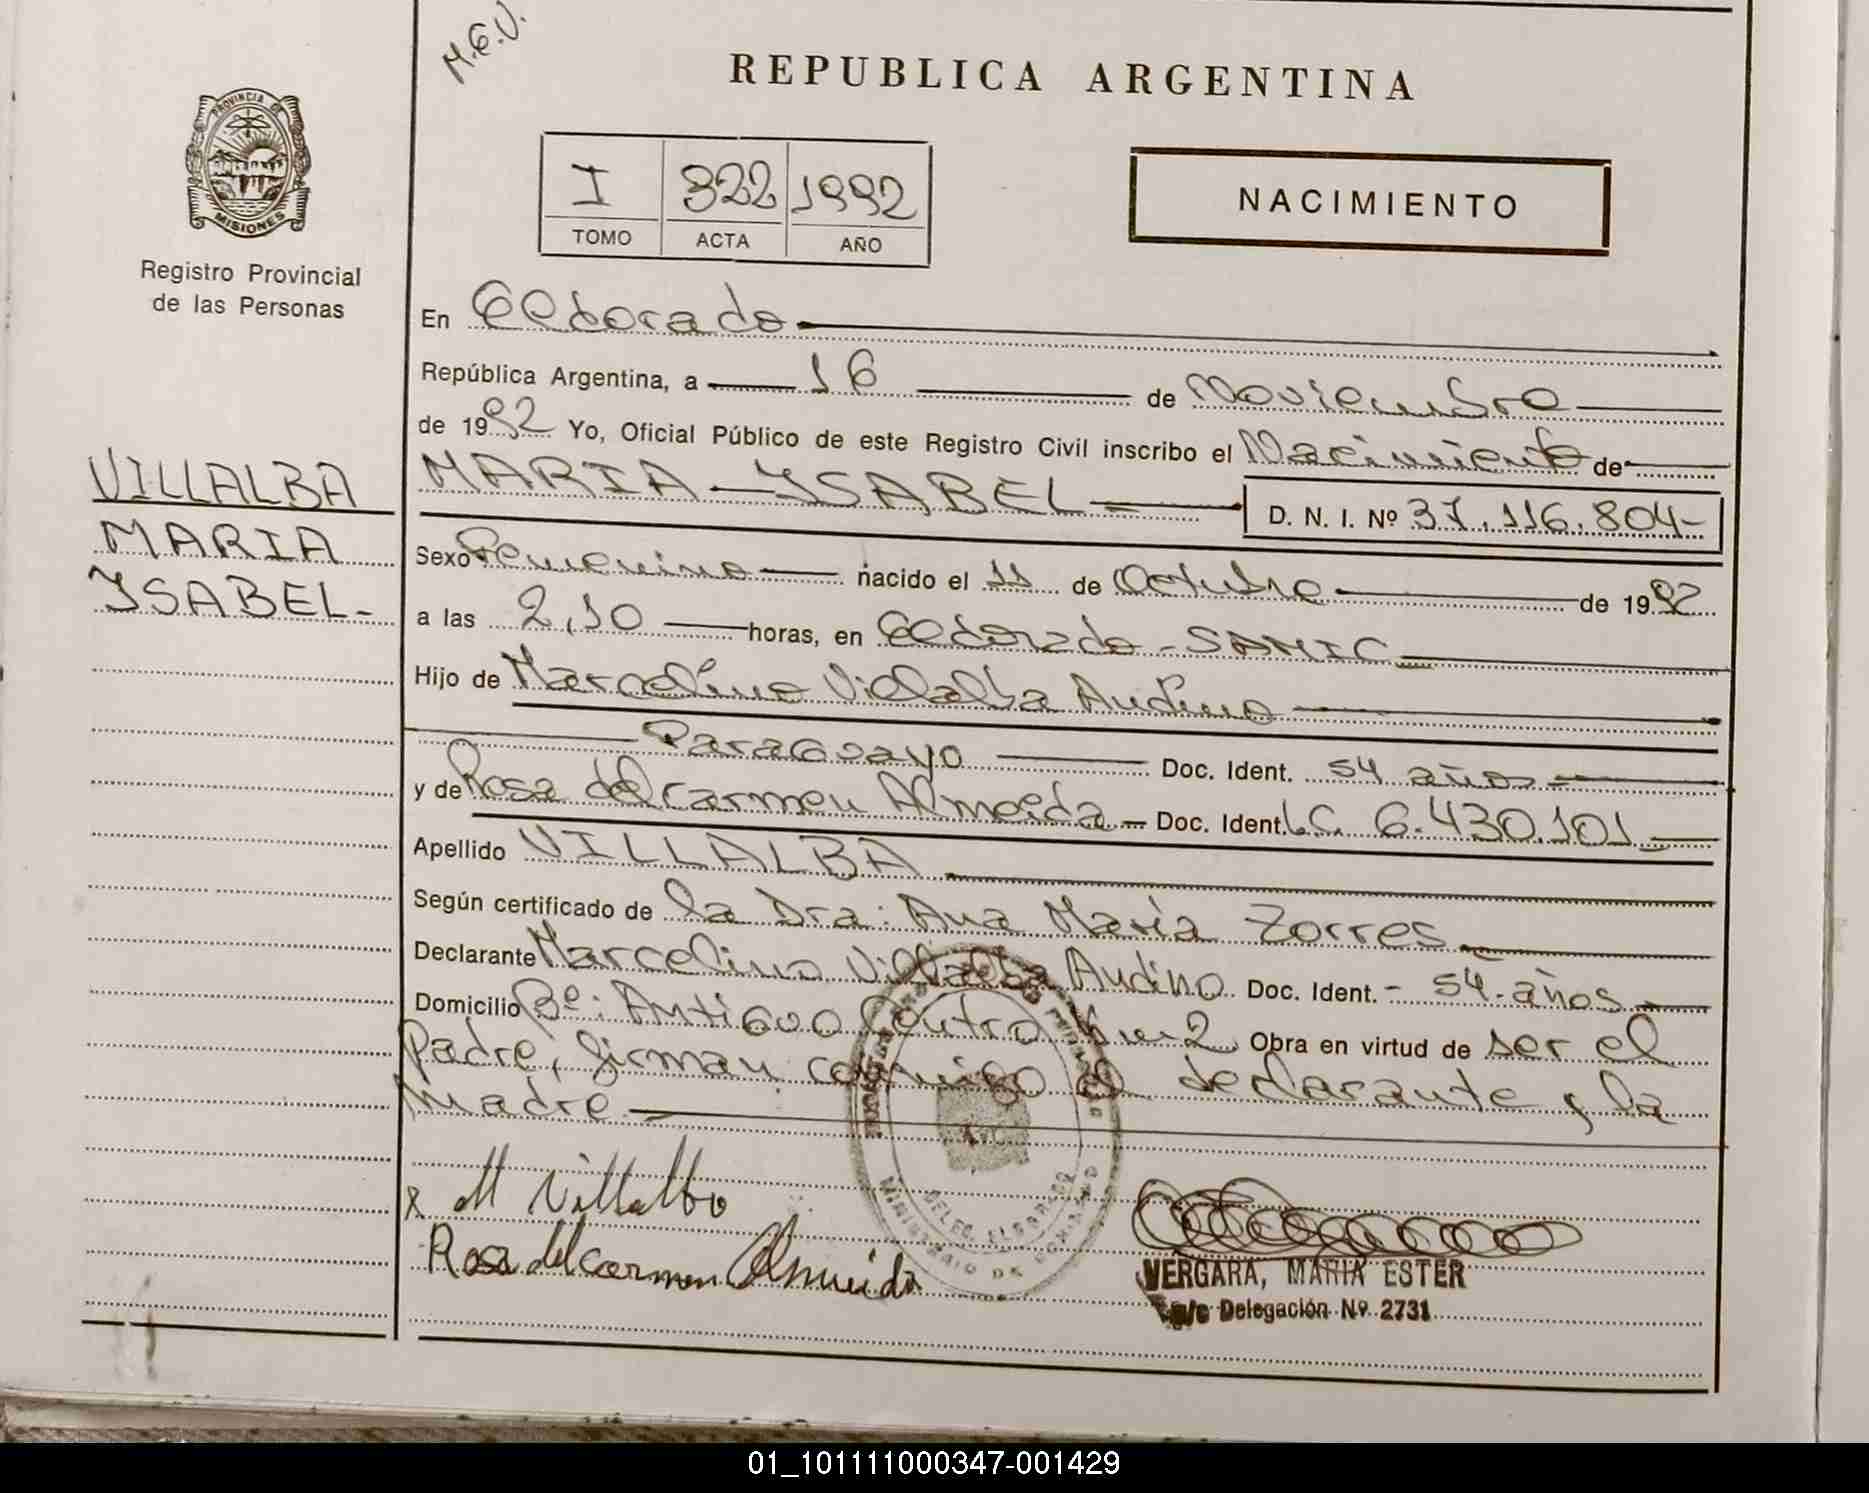 M.E.V.
REPUBLICA ARGENTINA
PROVINCIA DE
MISIONES
Registro Provincial
de las Personas
I 322 1992
TOMO ACTA AÑO
NACIMIENTO
En Eldorado
República Argentina, a 16 de Noviembre
de 1992 Yo, Oficial Público de este Registro Civil inscribo el Nacimiento de
VILLALBA
MARIA
YSABEL-
MARIA YSABEL D. N. I. Nº 37.116.804-
Sexo Femenino nacido el 11 de Octubre de 1992
a las 2,10 horas, en Eldorado - SAMIC
Hijo de Marcelino Villalba Audino
Paraguayo Doc. Ident. 54 años
y de Rosa del Carmen Almeida - Doc. Ident. L.C. 6.430.101
Apellido VILLALBA
Según certificado de la Dra: Ana María Torres
Declarante Marcelino Villalba Audino Doc. Ident. - 54 - años
Domicilio Bº: Antiguo Contro km 2 Obra en virtud de ser el
padre, firman conmigo el declarante y la
madre
x M Villalba
Rosa del carmen Almeida
DELEG. ELDORADO
MINISTERIO DE GOBIERNO
VERGARA, MARIA ESTER
a/c Delegación Nº 2731
01_101111000347-001429